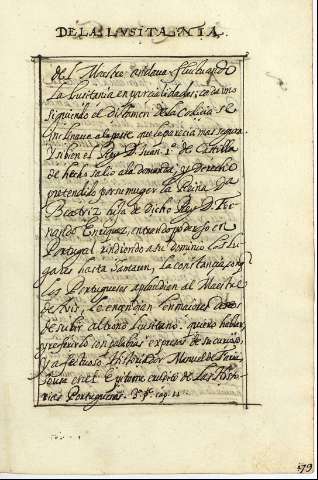 DE LA LUSITANIA.
del Maestre estava fluctuando
la Lusitania en parcialidades; cada uno
siguiendo el dictamen de la Codicia se
inclinava a la parte que le parecia mas segura
Y si bien el Rey D. Juan 1º de Castilla
de hecho salio a la demanda; y derecho
pretendido por su muger la Reina Da
Beatriz hija de dicho Rey D. Fer
nando Enriquez, entrando poderoso en
Portugal rindiendo a su dominio los Lu
gares hasta Santaren, la constancia, con q
los Portugueses aplaudian al Maestre
de Avis, le encendian en maiores deseos
de subir al trono Lusitano. quiero haber
preferido con palabras expresas de su cuio,
y afectuoso Historiador Manuel de Faria
Sousa en el Epitome erudito de las Histo
rias Portuguesas. 3. p. cap. 11
179